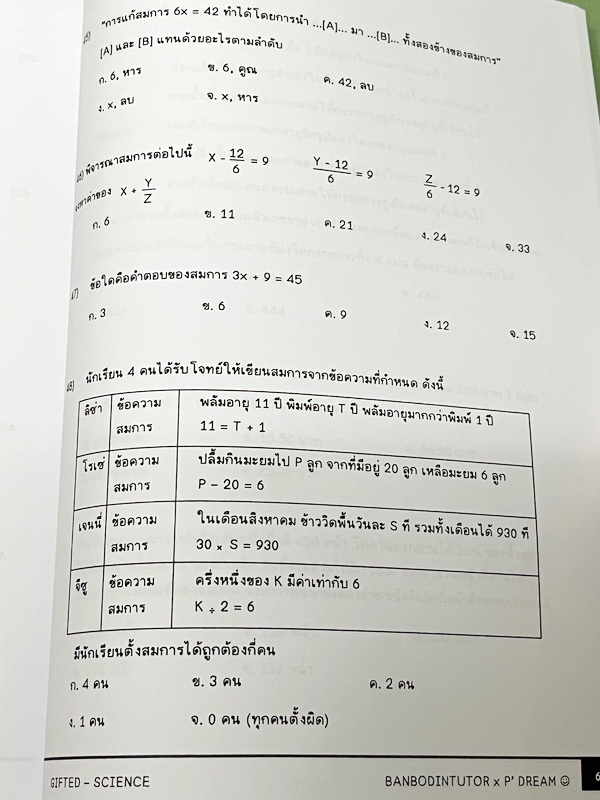 45) "การแก้สมการ 6x = 42 ทำได้โดยการนำ ...[A]... มา ...[B]... ทั้งสองข้างของสมการ"
[A] และ [B] แทนด้วยอะไรตามลำดับ
ก. 6, หาร ข. 6, คูณ ค. 42, ลบ
ง. x, ลบ จ. x, หาร
46) พิจารณาสมการต่อไปนี้ X - 12/6 = 9 (Y - 12)/6 = 9 Z/6 - 12 = 9
จงหาค่าของ X + Y/Z
ก. 6 ข. 11 ค. 21 ง. 24 จ. 33
47) ข้อใดคือคำตอบของสมการ 3x + 9 = 45
ก. 3 ข. 6 ค. 9 ง. 12 จ. 15
48) นักเรียน 4 คนได้รับโจทย์ให้เขียนสมการจากข้อความที่กำหนด ดังนี้
ลิซ่า ข้อความ พลัมอายุ 11 ปี พิมพ์อายุ T ปี พลัมอายุมากกว่าพิมพ์ 1 ปี
สมการ 11 = T + 1
โรเซ่ ข้อความ ปลื้มกินมะยมไป P ลูก จากที่มีอยู่ 20 ลูก เหลือมะยม 6 ลูก
สมการ P - 20 = 6
เจนนี่ ข้อความ ในเดือนสิงหาคม ข้าววิดพื้นวันละ S ที รวมทั้งเดือนได้ 930 ที
สมการ 30 × S = 930
จีซู ข้อความ ครึ่งหนึ่งของ K มีค่าเท่ากับ 6
สมการ K ÷ 2 = 6
มีนักเรียนตั้งสมการได้ถูกต้องกี่คน
ก. 4 คน ข. 3 คน ค. 2 คน
ง. 1 คน จ. 0 คน (ทุกคนตั้งผิด)
GIFTED - SCIENCE BANBODINTUTOR x P' DREAM ☺